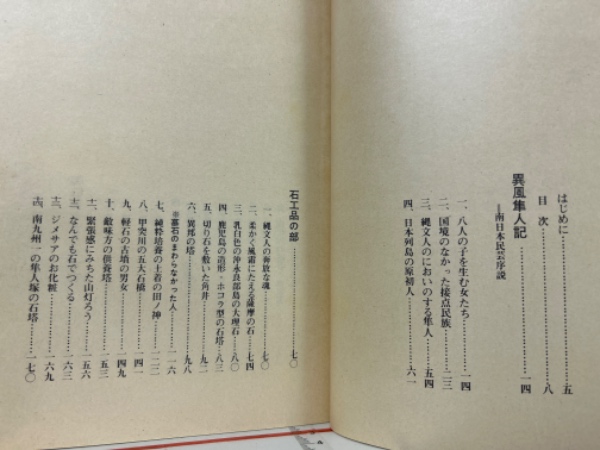 はじめに……………………五
目次……………………八
異風隼人記……………………一四
=南日本民芸序説
一、八人の子を生む女たち……一四
二、国境のなかった接点民族……二三
三、縄文人のにおいのする隼人……五四
四、日本列島の原初人……六一
石工品の部……………………七〇
一、縄文人の奔放な魂……七〇
二、柔かく風霜にたえる薩摩の石……七四
三、乳白色の沖永良部島の大理石……八〇
四、鹿児島の造形・ホコラ型の石塔……八三
五、切り石を敷いた角井……九二
六、異邦の塔……九八
※墓石のまわらなかった人……一一六
七、純粋培養の土着の田ノ神……一二三
八、甲突川の五大石橋……一四一
九、軽石の古墳の男女……一四九
十、敵味方の供養塔……一五三
十一、緊張感にみちた山灯ろう……一五六
十二、なんでも石でつくる……一六三
十三、ジメサアのお化粧……一六九
十四、南九州一の隼人塚の石塔……一七〇